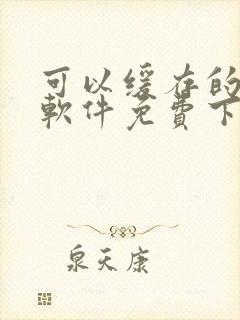 可以缓存的
软件免费下
泉天康